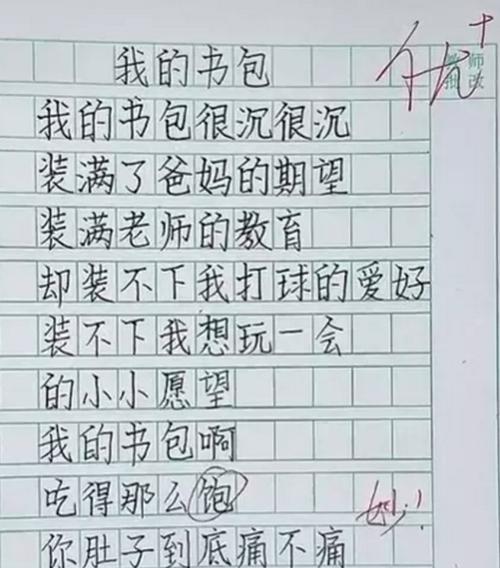 优+
教师
批改
我的书包
我的书包很沉很沉
装满了爸妈的期望
装满老师的教育
却装不下我打球的爱好
装不下我想玩一会
的小小愿望
我的书包啊
吃得那么饱
妙!
你肚子到底痛不痛